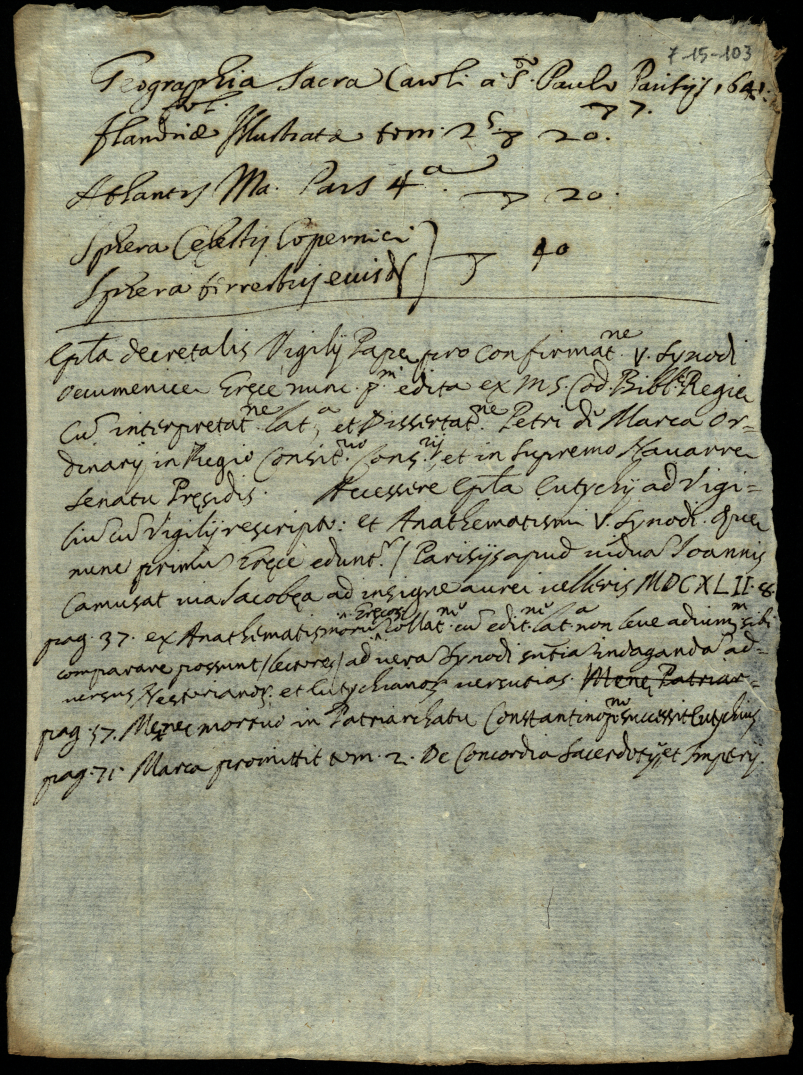 7-15-103
Geographia Sacra Caroli a S.to Paulo Parisijs 1641.
fol. 7.
Flandriæ Illustratæ tom. 2s. 20.
Athlantis Ma. Pars 4a. 20.
Sphera Cęlestis Copernici
Sphera tirrestris eiusd 40
Epla decretalis Vigilij Papę pro confirmatne V. Synodi
Oecumenicę Gręce nunc pm edita ex MS. Cod. Bibl. Regię
Cū interpretatne lata, et Dissertatne Petri de Marca Or-
dinarij in Regio Consitrio Consrij, et in Supremo Nauarrę
Senatu Pręsidis. Accessere Epla Eutychij ad Vigi=
liū cū Vigilij rescripto: et Anathematismi V. Synodi. Quę
nunc primū Gręce eduntr / Parisijs apud uiduā Ioannis
Camusat uia Iacobęa ad insigne aurei uelleris MDCXLII. 8.
pag. 37. ex Anathematismorū Gręcorū Collatne cū editne lata non leue adiumm sibi
comparare possunt (lectores) ad uerā Synodi sntia indagandā ad=
uersus Nestorianos, et Eutychianos uersutias. Menę Patriar=
pag. 57. Menę mortuo in Patriarchatu Constantinopno successit Eutychius
pag. 71. Marca promittit tom. 2. De Concordia Sacerdotij, et Imperij.